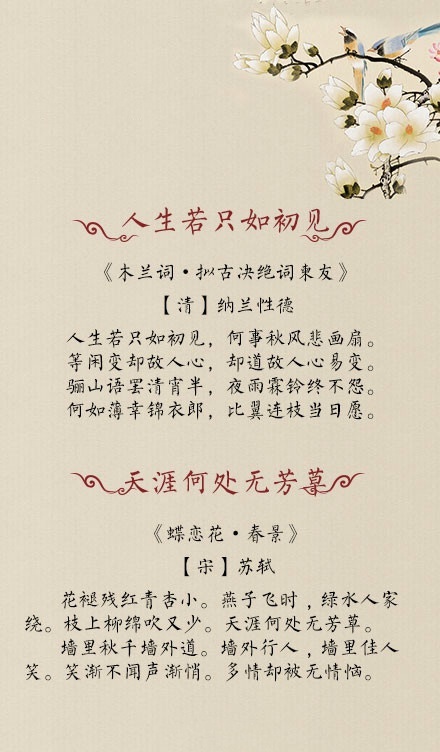 人生若只如初见
《木兰词·拟古决绝词柬友》
【清】纳兰性德
人生若只如初见，何事秋风悲画扇。
等闲变却故人心，却道故人心易变。
骊山语罢清宵半，夜雨霖铃终不怨。
何如薄幸锦衣郎，比翼连枝当日愿。
天涯何处无芳草
《蝶恋花·春景》
【宋】苏轼
花褪残红青杏小。燕子飞时，绿水人家
绕。枝上柳绵吹又少。天涯何处无芳草。
墙里秋千墙外道。墙外行人，墙里佳人
笑。笑渐不闻声渐悄。多情却被无情恼。